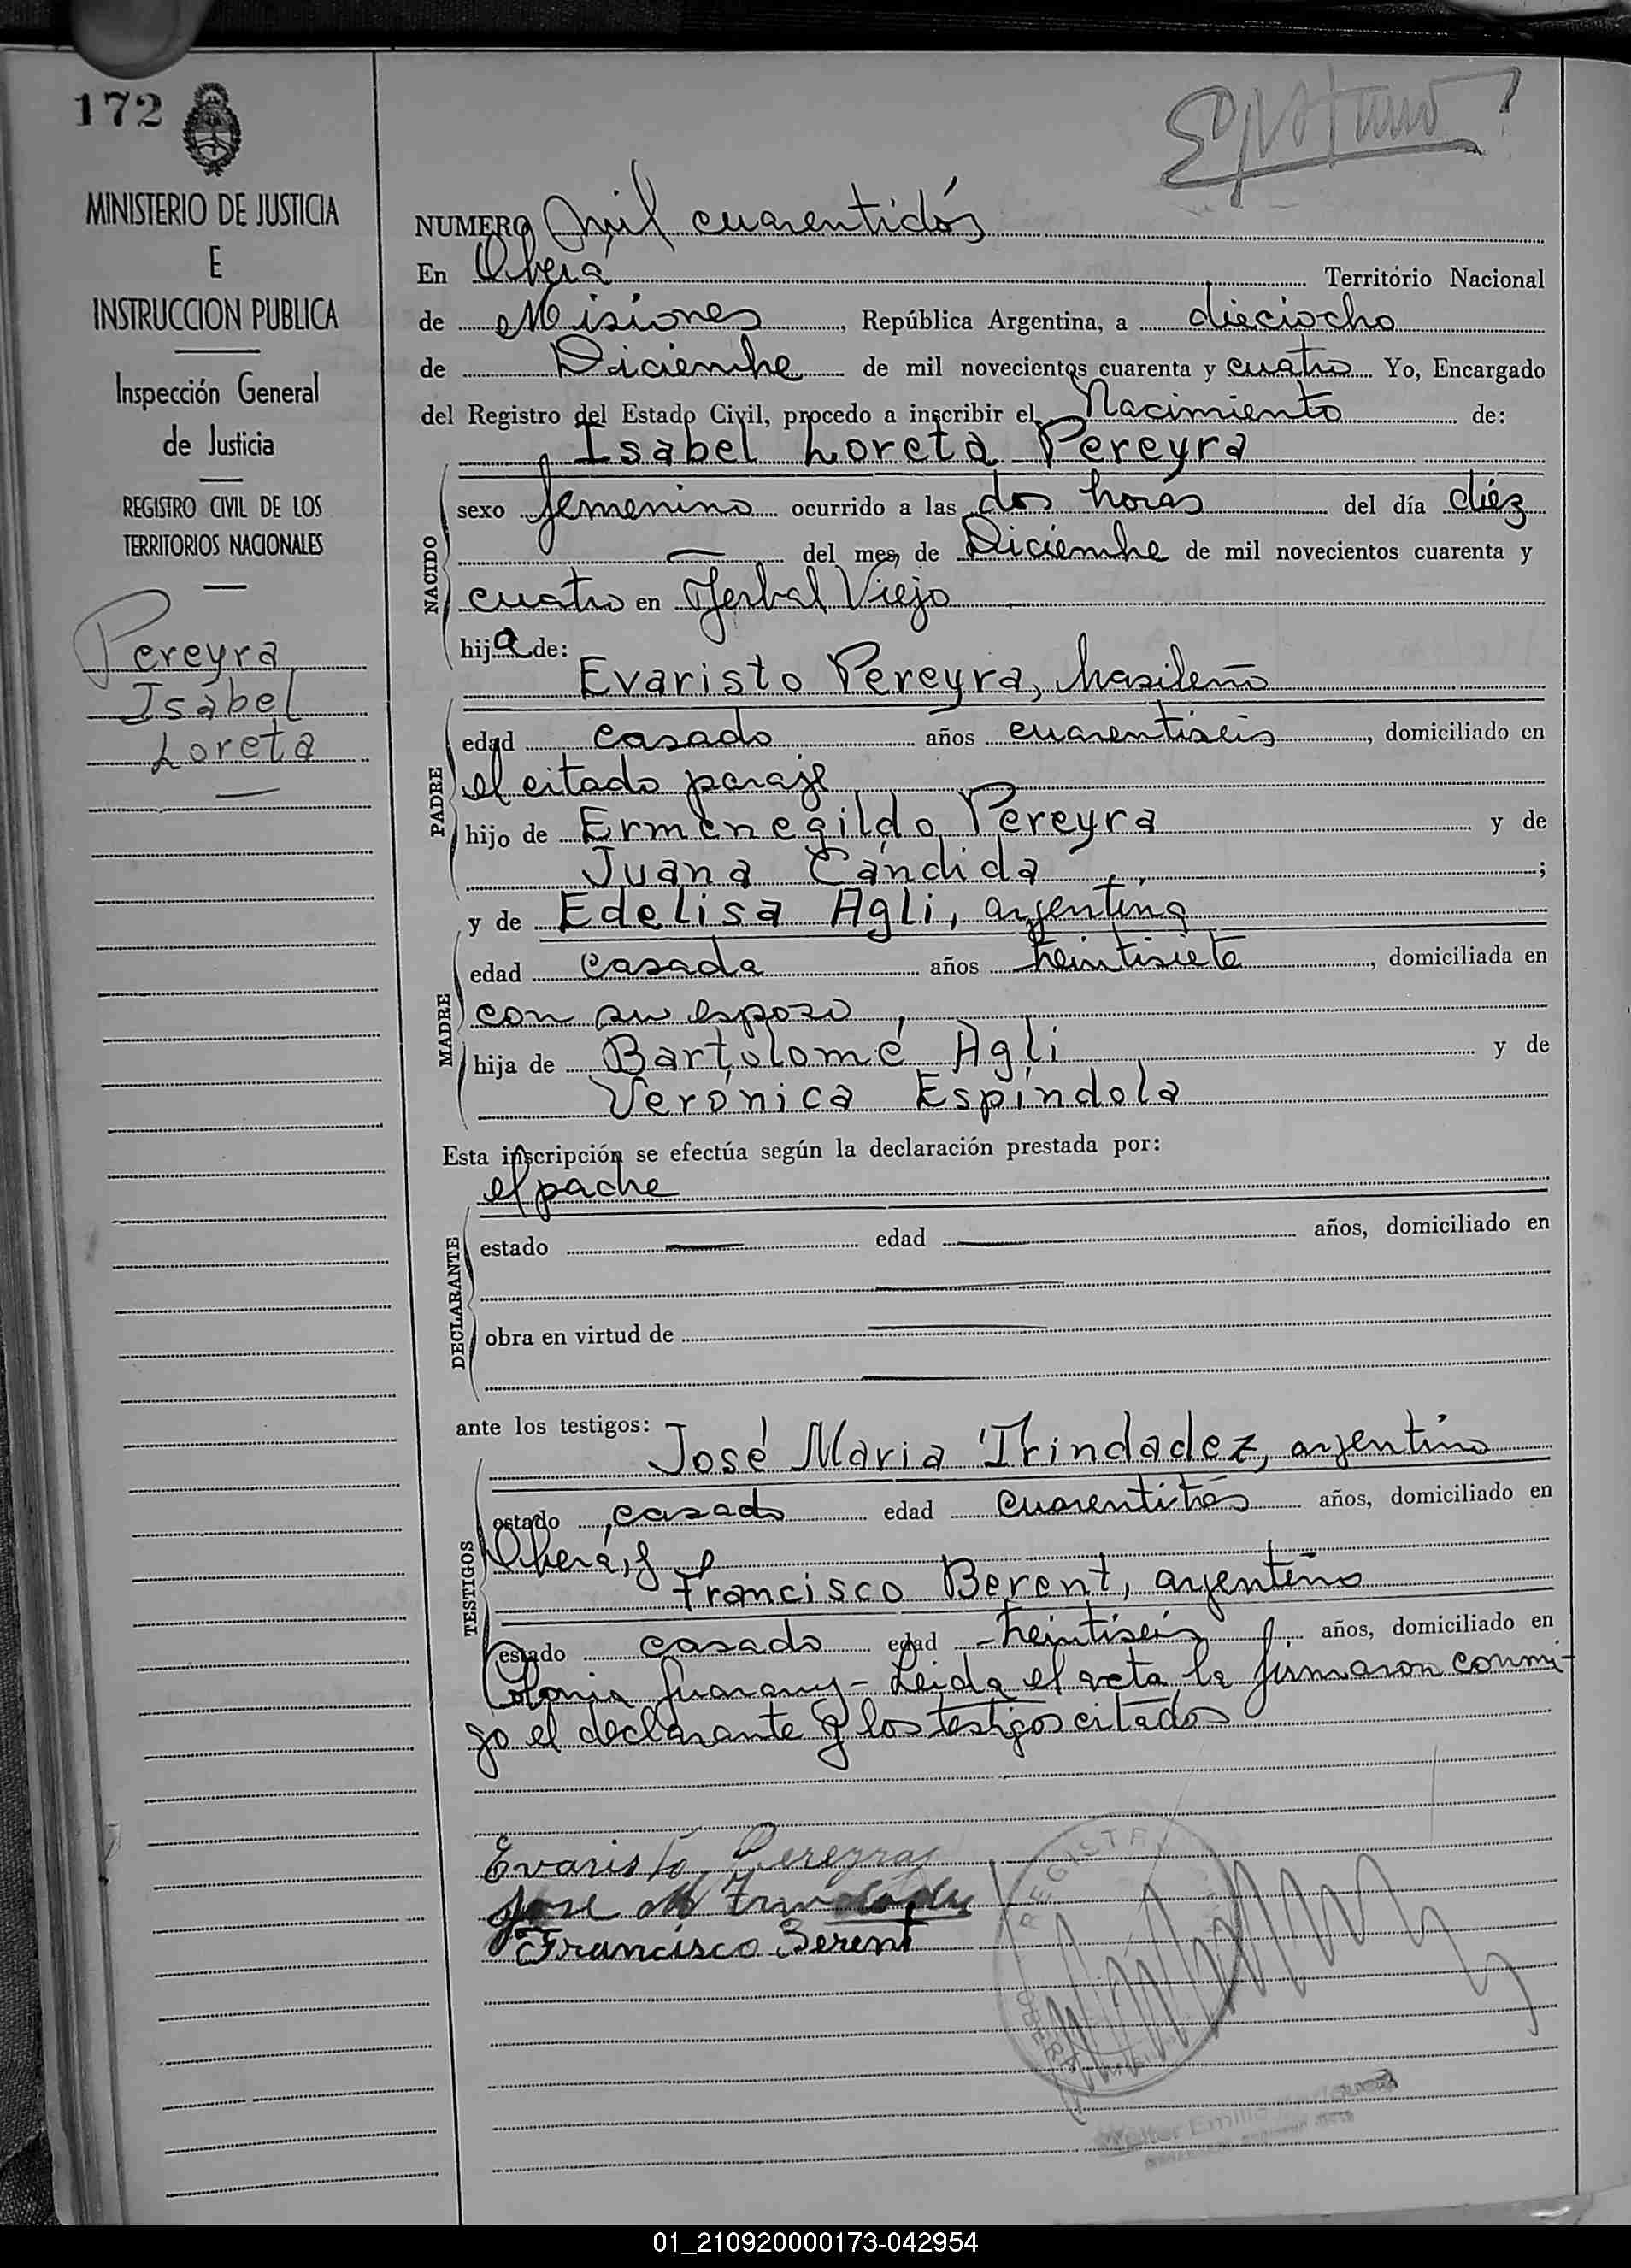 172
MINISTERIO DE JUSTICIA
E
INSTRUCCION PUBLICA
Inspección General
de Justicia
REGISTRO CIVIL DE LOS
TERRITORIOS NACIONALES
Pereyra
Isabel
Loreta
NUMERO Mil cuarentidós
En Oberá Territorio Nacional
de Misiones, República Argentina, a dieciocho
de Diciembre de mil novecientos cuarenta y cuatro Yo, Encargado
del Registro del Estado Civil, procedo a inscribir el Nacimiento de:
Isabel Loreta Pereyra
NACIDO
sexo femenino ocurrido a las dos horas del día diéz
del mes de Diciembre de mil novecientos cuarenta y
cuatro en Yerbal Viejo
hija de:
Evaristo Pereyra, brasileño
PADRE
edad casado años cuarentiseis, domiciliado en
el citado paraje
hijo de Ermenegildo Pereyra y de
Juana Cándida ;
y de Edelisa Agli, argentina
MADRE
edad casada años treintisiete, domiciliada en
con su esposo
hija de Bartolomé Agli y de
Verónica Espíndola
Esta inscripción se efectúa según la declaración prestada por:
el padre
DECLARANTE
estado — edad — años, domiciliado en
obra en virtud de —
ante los testigos: José Maria Trindadez, argentino
TESTIGOS
estado casado edad cuarentitrés años, domiciliado en
Oberá, y
Francisco Berent, argentino
estado casado edad treintiseis años, domiciliado en
Colonia Guarany - Leida el acta la firmaron conmi-
go el declarante y los testigos citados
Evaristo Pereyra
Jose M Trindadez
Francisco Berent
REGISTR
OBERA
Walter Emilio
01_210920000173-042954